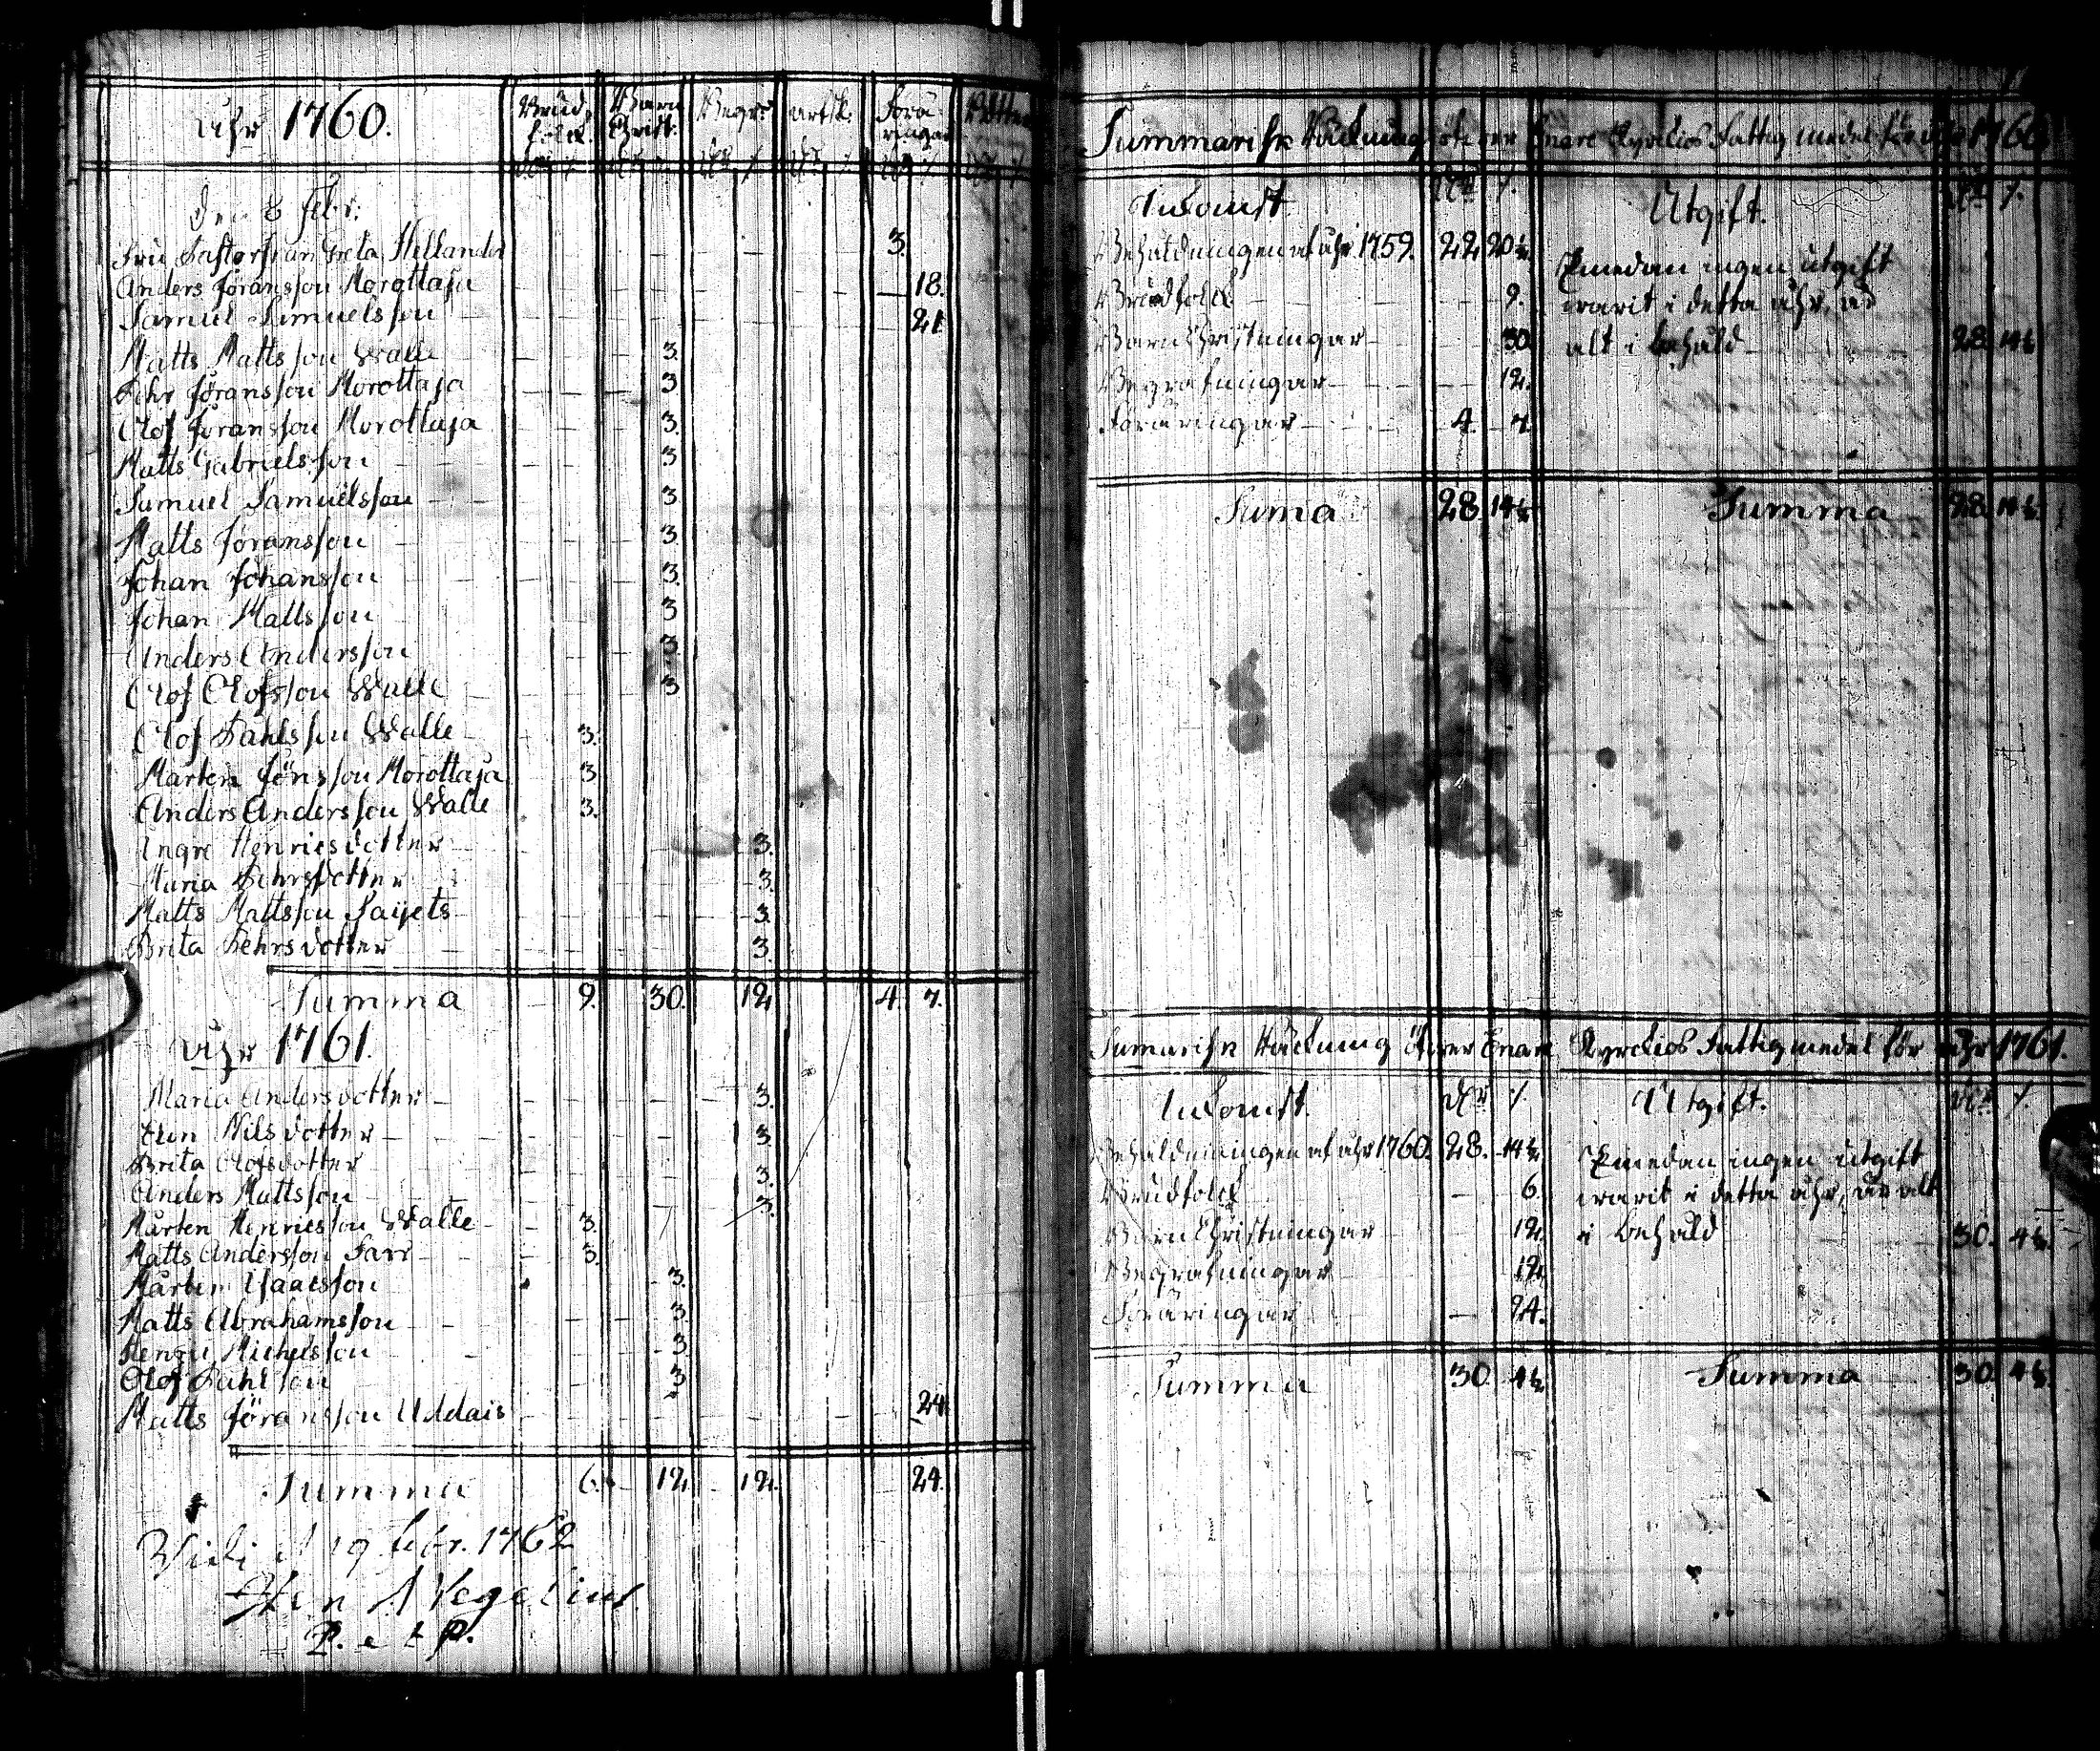 Åhr 1760.
Brud folck. Barn Christ: Begrf: Föräringar
Den 8 Febr:
Fru Pastorskan Greta Hellander 3.
Anders Jöransson Morottaja 18.
Samuel Samuelsson 21
Matts Mattsson Walle 3.
Pehr Jöransson Morottaja 3
Olof Jöransson Morottaja 3.
Matts Gabrielsson 3
Samuel Samuelsson 3
Matts Jöransson 3
Johan Johansson 3.
Johan Mattsson 3
Anders Andersson 3
Olof Olofsson Walle 3
Olof Pahlsson Walle 3.
Mårten Jönsson Morottaja 3
Anders Andersson Walle 3.
Ingre Henricsdotter 3.
Maria Pehrsdotter 3.
Matts Mattsson Saijets 3.
Brita Pehrsdotter 3
Summa 9. 30. 12 4. 7.
Åhr 1761.
Maria Andersdotter 3.
Elin Nilsdotter 3.
Brita Olofsdotter 3.
Anders Mattsson 3.
Mårten Henricsson Walle 3.
Matts Andersson Sarr 3.
Mårten Isaacsson 3.
Matts Abrahamsson 3.
Michelsson 3.
Olof Pahlsson 3
Matts Jöransson Uddais 24
Summa 6. 12. 12. 24.
Vidi d 19 Febr. 1762
Hen Wegelius
P. et P.
Summarisk Räckning öfwer Enare Kyrckios Fattig medel för åhr 1760
Inkomst Utgift.
Behåldningen af åhr 1759. 22 20 ½
Brudfolck 9.
Barn Christningar 30
Begrafningar 12.
Föräringar 4. 7.
Emedan ingen utgift
warit i detta åhr, är
alt i behåld 28 14½
Suma 28. 14½ Summa 28 14½
Sumarisk Räckning öfwer Enare Kyrckios Fattigmedel för åhr 1761.
Inkomst. Utgift.
Behåldningen af åhr 1760. 28. 14½
Brudfolck 6.
Barn Christningar 12.
Begrafningar 12.
Föräringar 24.
Emedan ingen utgift
warit i detta åhr, är alt
i behåld 30. 4½.
Summa 30. 4½ Summa 30. 4½.